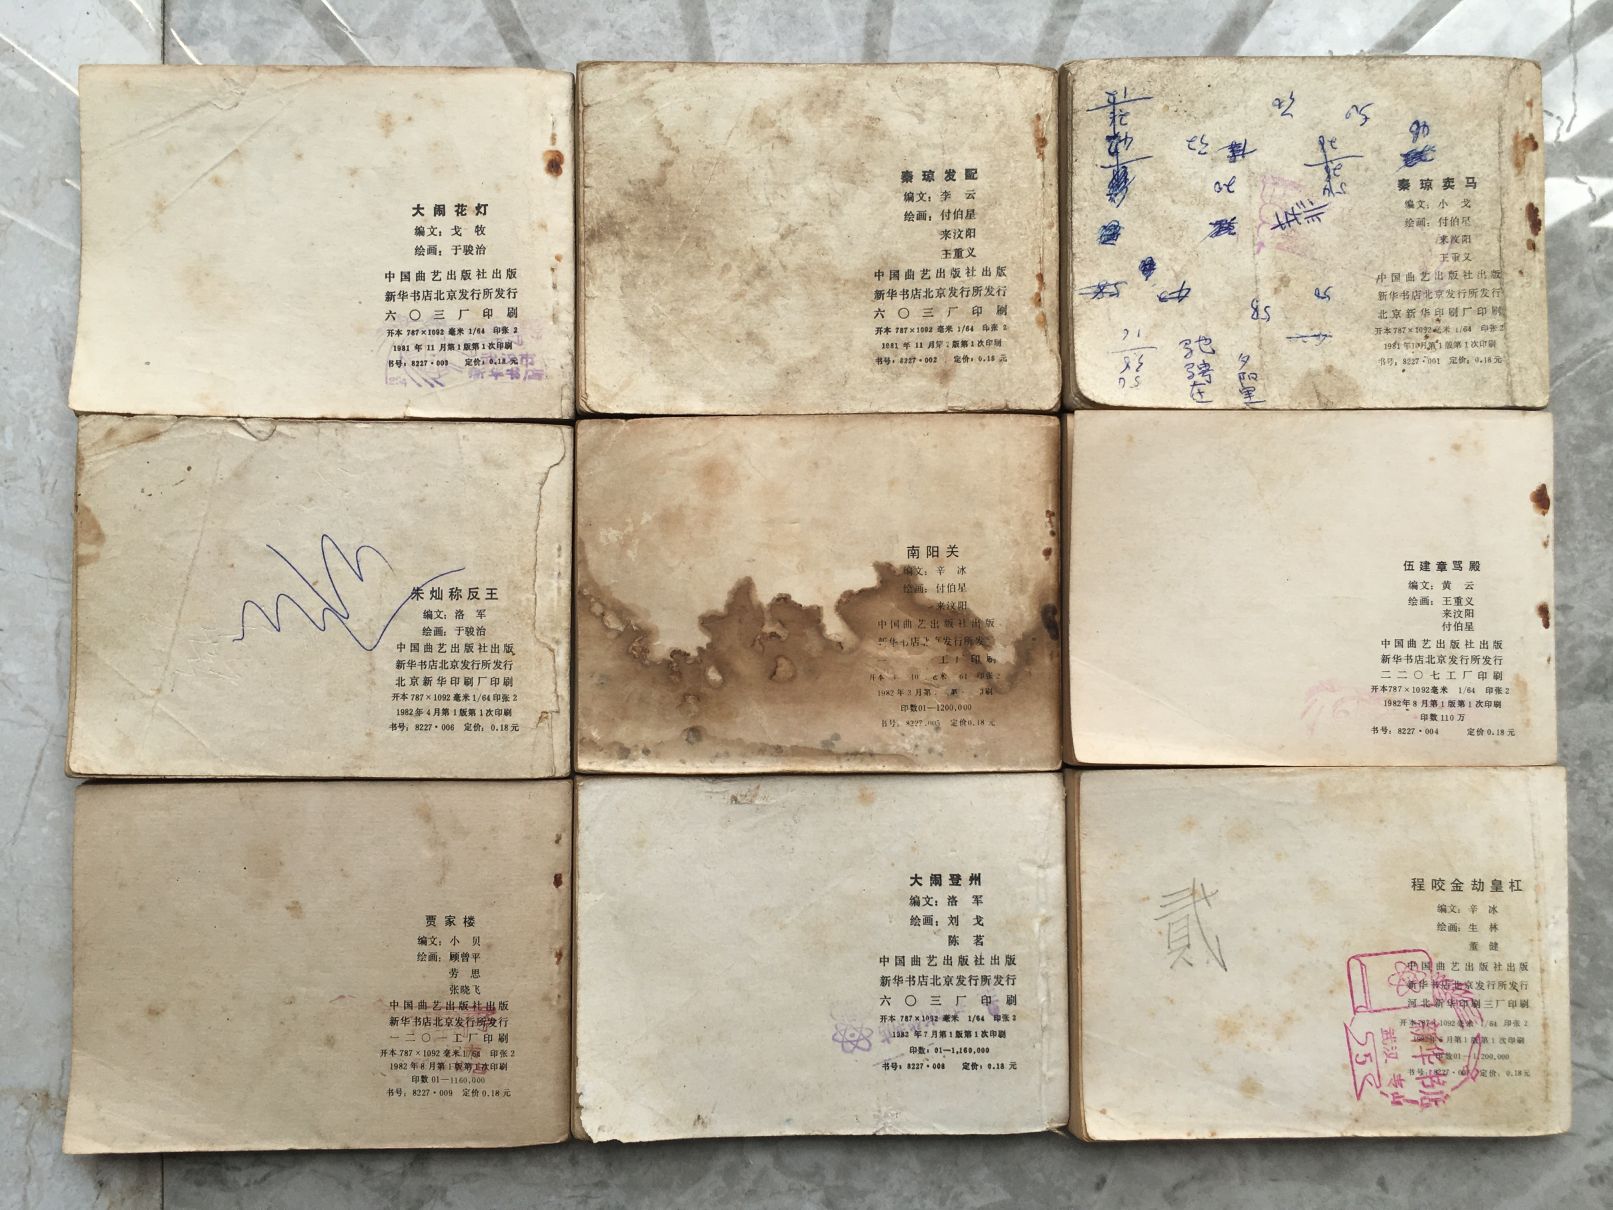 大闹花灯
编文：戈 牧
绘画：于骏治
中国曲艺出版社出版
新华书店北京发行所发行
六〇三厂印刷
开本 787×1092 毫米 1/64 印张 2
1981 年 11 月第 1 版第 1 次印刷
书号：8227·003 定价：0.18 元
秦琼发配
编文：李 云
绘画：付伯星
来汶阳
王重义
中国曲艺出版社出版
新华书店北京发行所发行
六〇三厂印刷
开本 787×1092 毫米 1/64 印张 2
1981 年 11 月第 1 版第 1 次印刷
书号：8227·002 定价：0.18 元
秦琼卖马
编文：小 戈
绘画：付伯星
来汶阳
王重义
中国曲艺出版社出版
新华书店北京发行所发行
北京新华印刷厂印刷
开本 787×1092 毫米 1/64 印张 2
1981 年 10 月第 1 版第 1 次印刷
书号：8227·001 定价：0.18 元
朱灿称反王
编文：洛 军
绘画：于骏治
中国曲艺出版社出版
新华书店北京发行所发行
北京新华印刷厂印刷
开本 787×1092 毫米 1/64 印张 2
1982 年 4 月第 1 版第 1 次印刷
书号：8227·006 定价：0.18 元
南阳关
编文：辛 冰
绘画：付伯星
来汶阳
中国曲艺出版社出版
新华书店北京发行所发
工厂印刷
印张 2
1982 年 3 月第
印数 01—1200,000
书号：8227·005 定价 0.18 元
伍建章骂殿
编文：黄 云
绘画：王重义
来汶阳
付伯星
中国曲艺出版社出版
新华书店北京发行所发行
二二〇七工厂印刷
开本 787×1092 毫米 1/64 印张 2
1982 年 8 月第 1 版第 1 次印刷
印数 110 万
书号：8227·004 定价：0.18 元
贾家楼
编文：小 贝
绘画：顾曾平
劳 思
张晓飞
中国曲艺出版社出版
新华书店北京发行所发行
一二〇一工厂印刷
开本 787×1092 毫米 1/64 印张 2
1982 年 8 月第 1 版第 1 次印刷
印数 01—1160,000
书号：8227·009 定价 0.18 元
大闹登州
编文：洛 军
绘画：刘 戈
陈 茗
中国曲艺出版社出版
新华书店北京发行所发行
六〇三厂印刷
开本 787×1092 毫米 1/64 印张 2
1982 年 7 月第 1 版第 1 次印刷
印数：01—1,160,000
书号：8227·008 定价：0.18 元
貳
程咬金劫皇杠
编文：辛 冰
绘画：生 林
董 健
中国曲艺出版社出版
新华书店北京发行所发行
河北新华印刷三厂印刷
开本 787×1092 毫米 1/64 印张 2
月第 1 版第 1 次印刷
印数 01—1,200,000
书号：8227· 定价：0.18 元
新华书店
武汉
55